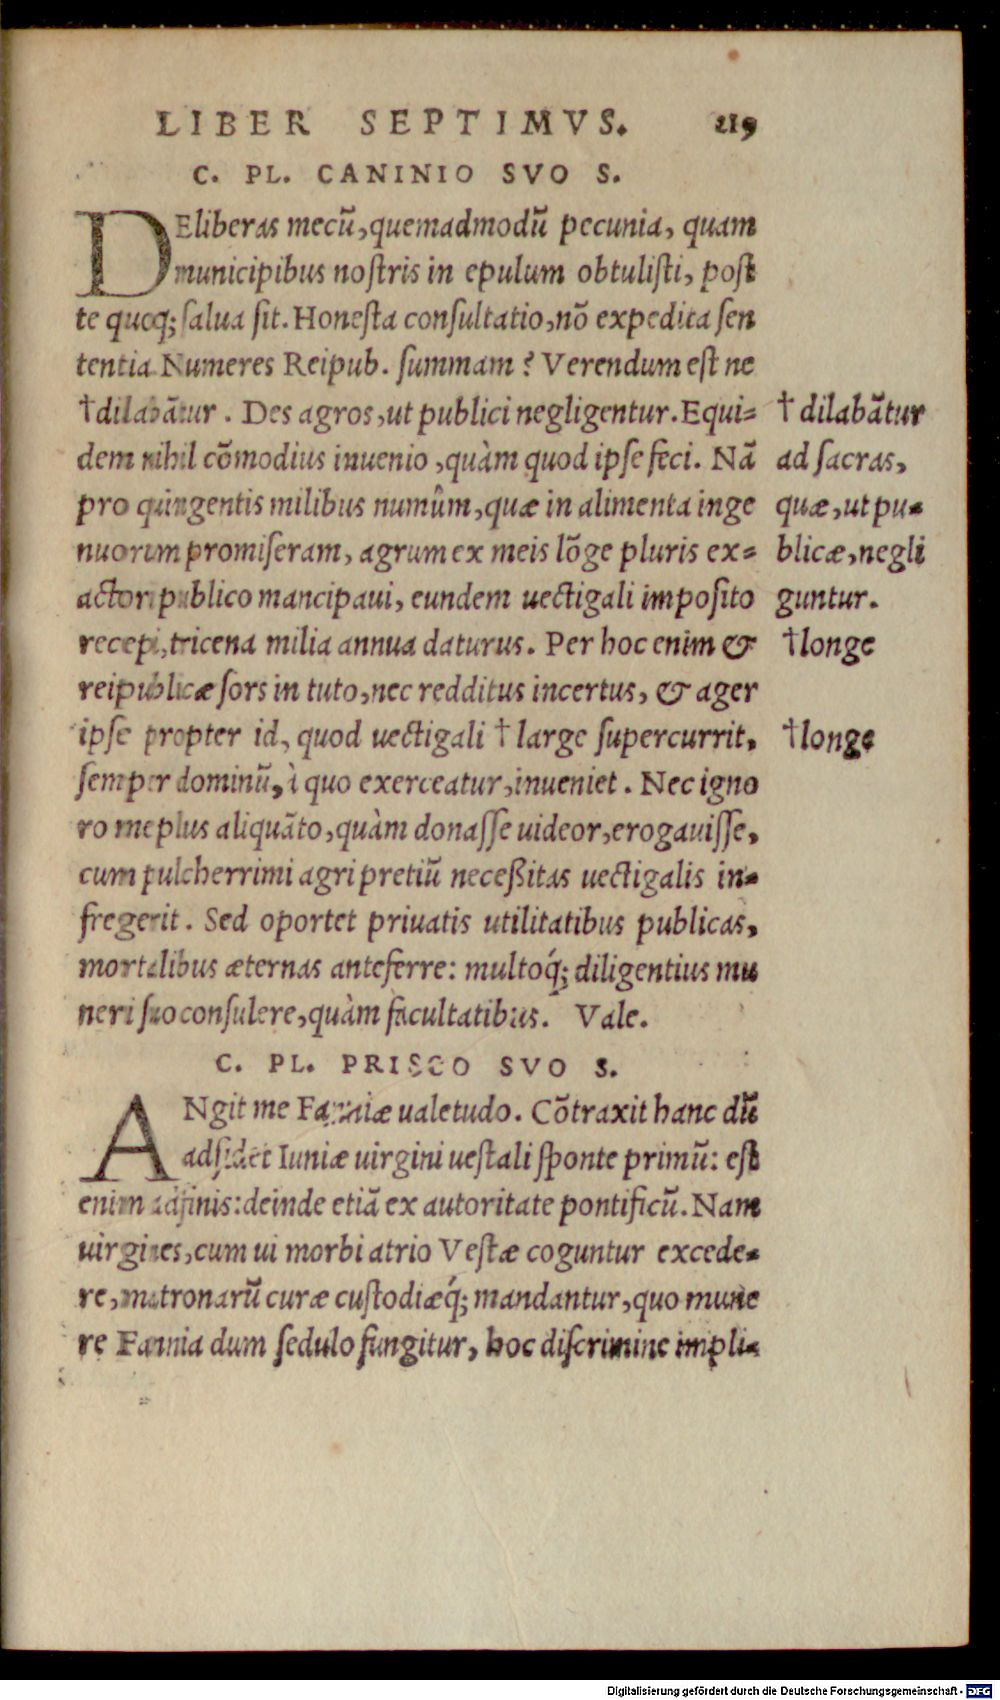 LIBER SEPTIMVS. 219
C. PL. CANINIO SVO S.
DEliberas mecū, quemadmodū pecunia, quam
municipibus nostris in epulum obtulisti, post
te quoq; salua sit. Honesta consultatio, nō expedita sen
tentia Numeres Reipub. summam? Verendum est ne
†dilabātur. Des agros, ut publici negligentur. Equi=
dem nihil cōmodius inuenio, quàm quod ipse feci. Nā
pro quingentis milibus numûm, quæ in alimenta inge
nuorum promiseram, agrum ex meis lōge pluris ex=
actori publico mancipaui, eundem uectigali imposito
recepi, tricena milia annua daturus. Per hoc enim &
reipublicæ sors in tuto, nec redditus incertus, & ager
ipse propter id, quod uectigali † large supercurrit,
semper dominū, à quo exerceatur, inueniet. Nec igno
ro me plus aliquāto, quàm donasse uideor, erogauisse,
cum pulcherrimi agri pretiū neceßitas uectigalis in=
fregerit. Sed oportet priuatis utilitatibus publicas,
mortalibus æternas anteferre: multoq́; diligentius mu
neri suo consulere, quàm facultatibus. Vale.
† dilabātur
ad sacras,
quæ, ut pu=
blicæ, negli
guntur.
†longe
†longe
C. PL. PRISCO SVO S.
ANgit me Fanniæ ualetudo. Cōtraxit hanc dū
adsidet Iuniæ uirgini uestali sponte primū: est
enim adfinis: deinde etiā ex autoritate pontificū. Nam
uirgines, cum ui morbi atrio Vestæ coguntur excede=
re, matronarū curæ custodiæq́; mandantur, quo mune
re Fannia dum sedulo fungitur, hoc discrimine impli=
Digitalisierung gefördert durch die Deutsche Forschungsgemeinschaft - DFG